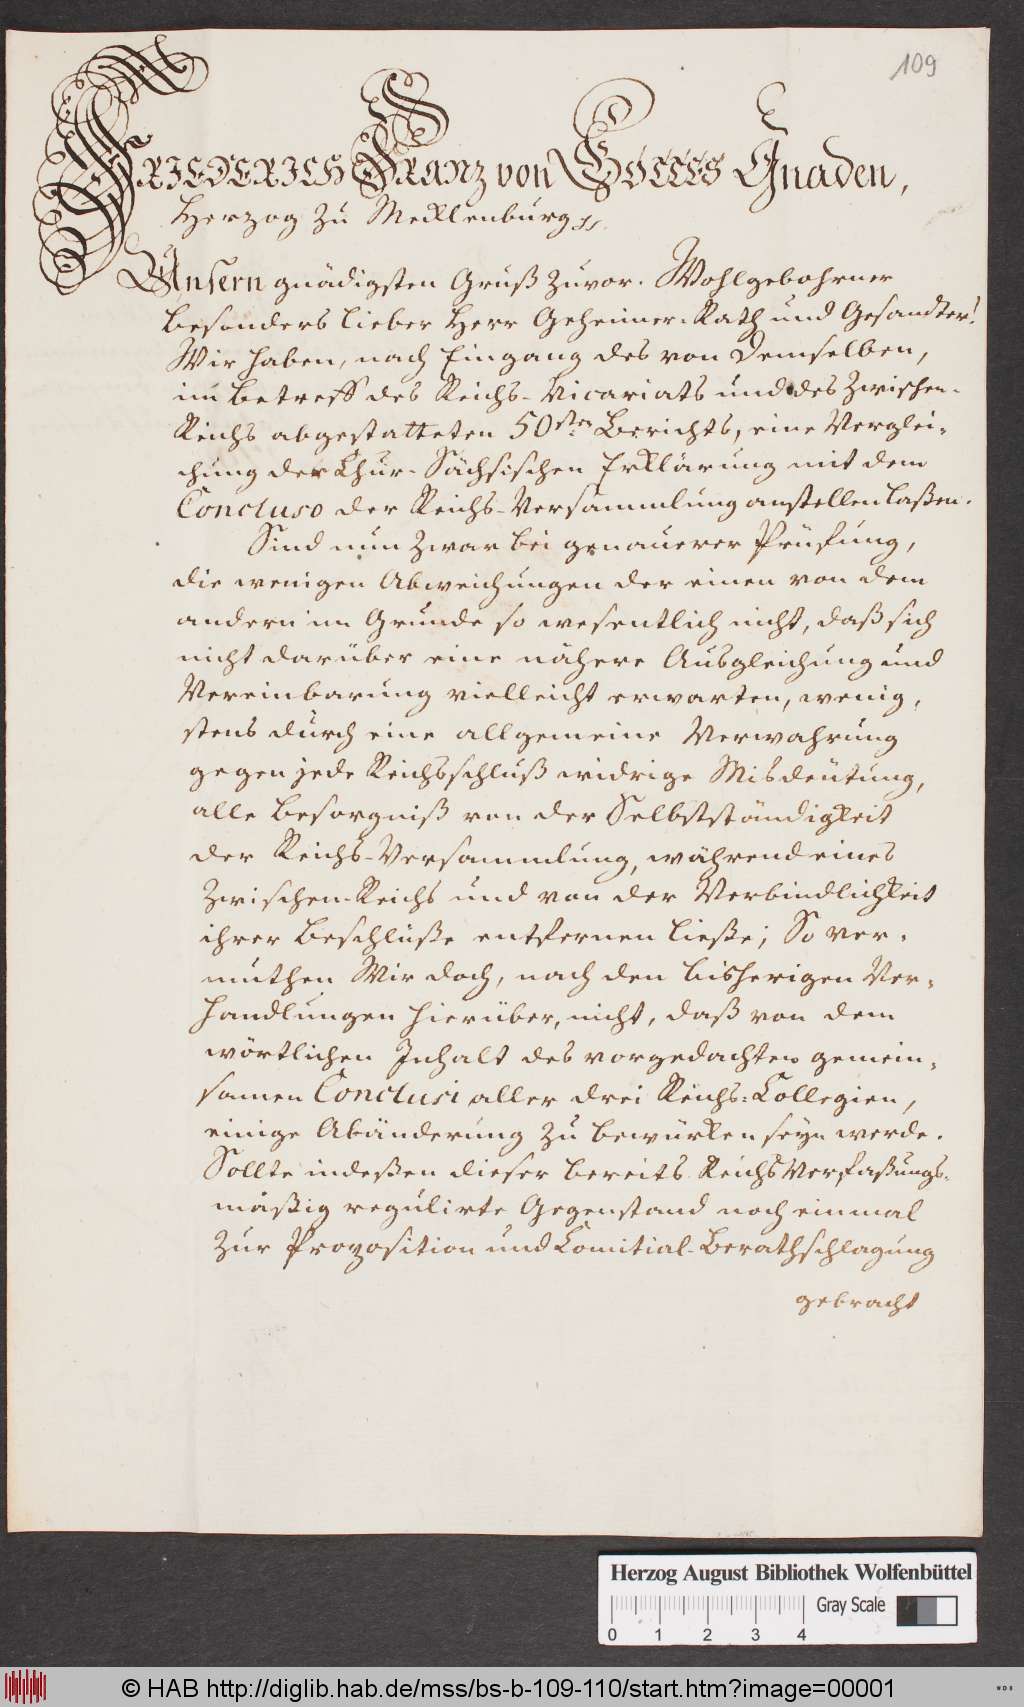 109
Friederich Franz von Gottes Gnaden,
Herzog zu Mecklenburg
Unsern gnädigsten Gruß zuvor. Wohlgebohrner
besonders lieber Herr Geheimer-Rath und Gesandter!
Wir haben, nach Eingang des von demselben,
im Betreff des Reichs-Vicariats und des Zwischen-
Reichs abgestatteten 50sten Berichts, eine Verglei-
chung der Chur-Sächsischen Erklärung mit dem
Concluso der Reichs-Versammlung anstellen laßen.
Sind nun zwar bei genauerer Prüfung,
die wenigen Abweichungen der einen von dem
andern im Grunde so wesentlich nicht, daß sich
nicht darüber eine nähere Ausgleichung und
Vereinbarung vielleicht erwarten, wenig-
stens durch eine allgemeine Verwahrung
gegen jede Reichsschluß widrige Misdeutung,
alle Besorgniß von der Selbstständigkeit
der Reichs-Versammlung, während eines
Zwischen-Reichs und von der Verbindlichkeit
ihrer Beschlüße entfernen ließe; So ver-
muthen Wir doch, nach den bisherigen Ver-
handlungen hierüber, nicht, daß von dem
wörtlichen Inhalt des vorgedachten gemein-
samen Conclusi aller drei Reichs-Collegien,
einige Abänderung zu bewürken seyn werde.
Sollte indeßen dieser bereits Reichs Verfaßungs-
mäßig regulirte Gegenstand noch einmal
zur Proposition und Comitial-Berathschlagung
gebracht
Herzog August Bibliothek Wolfenbüttel
Gray Scale
0 1 2 3 4
© HAB http://diglib.hab.de/mss/bs-b-109-110/start.htm?image=00001